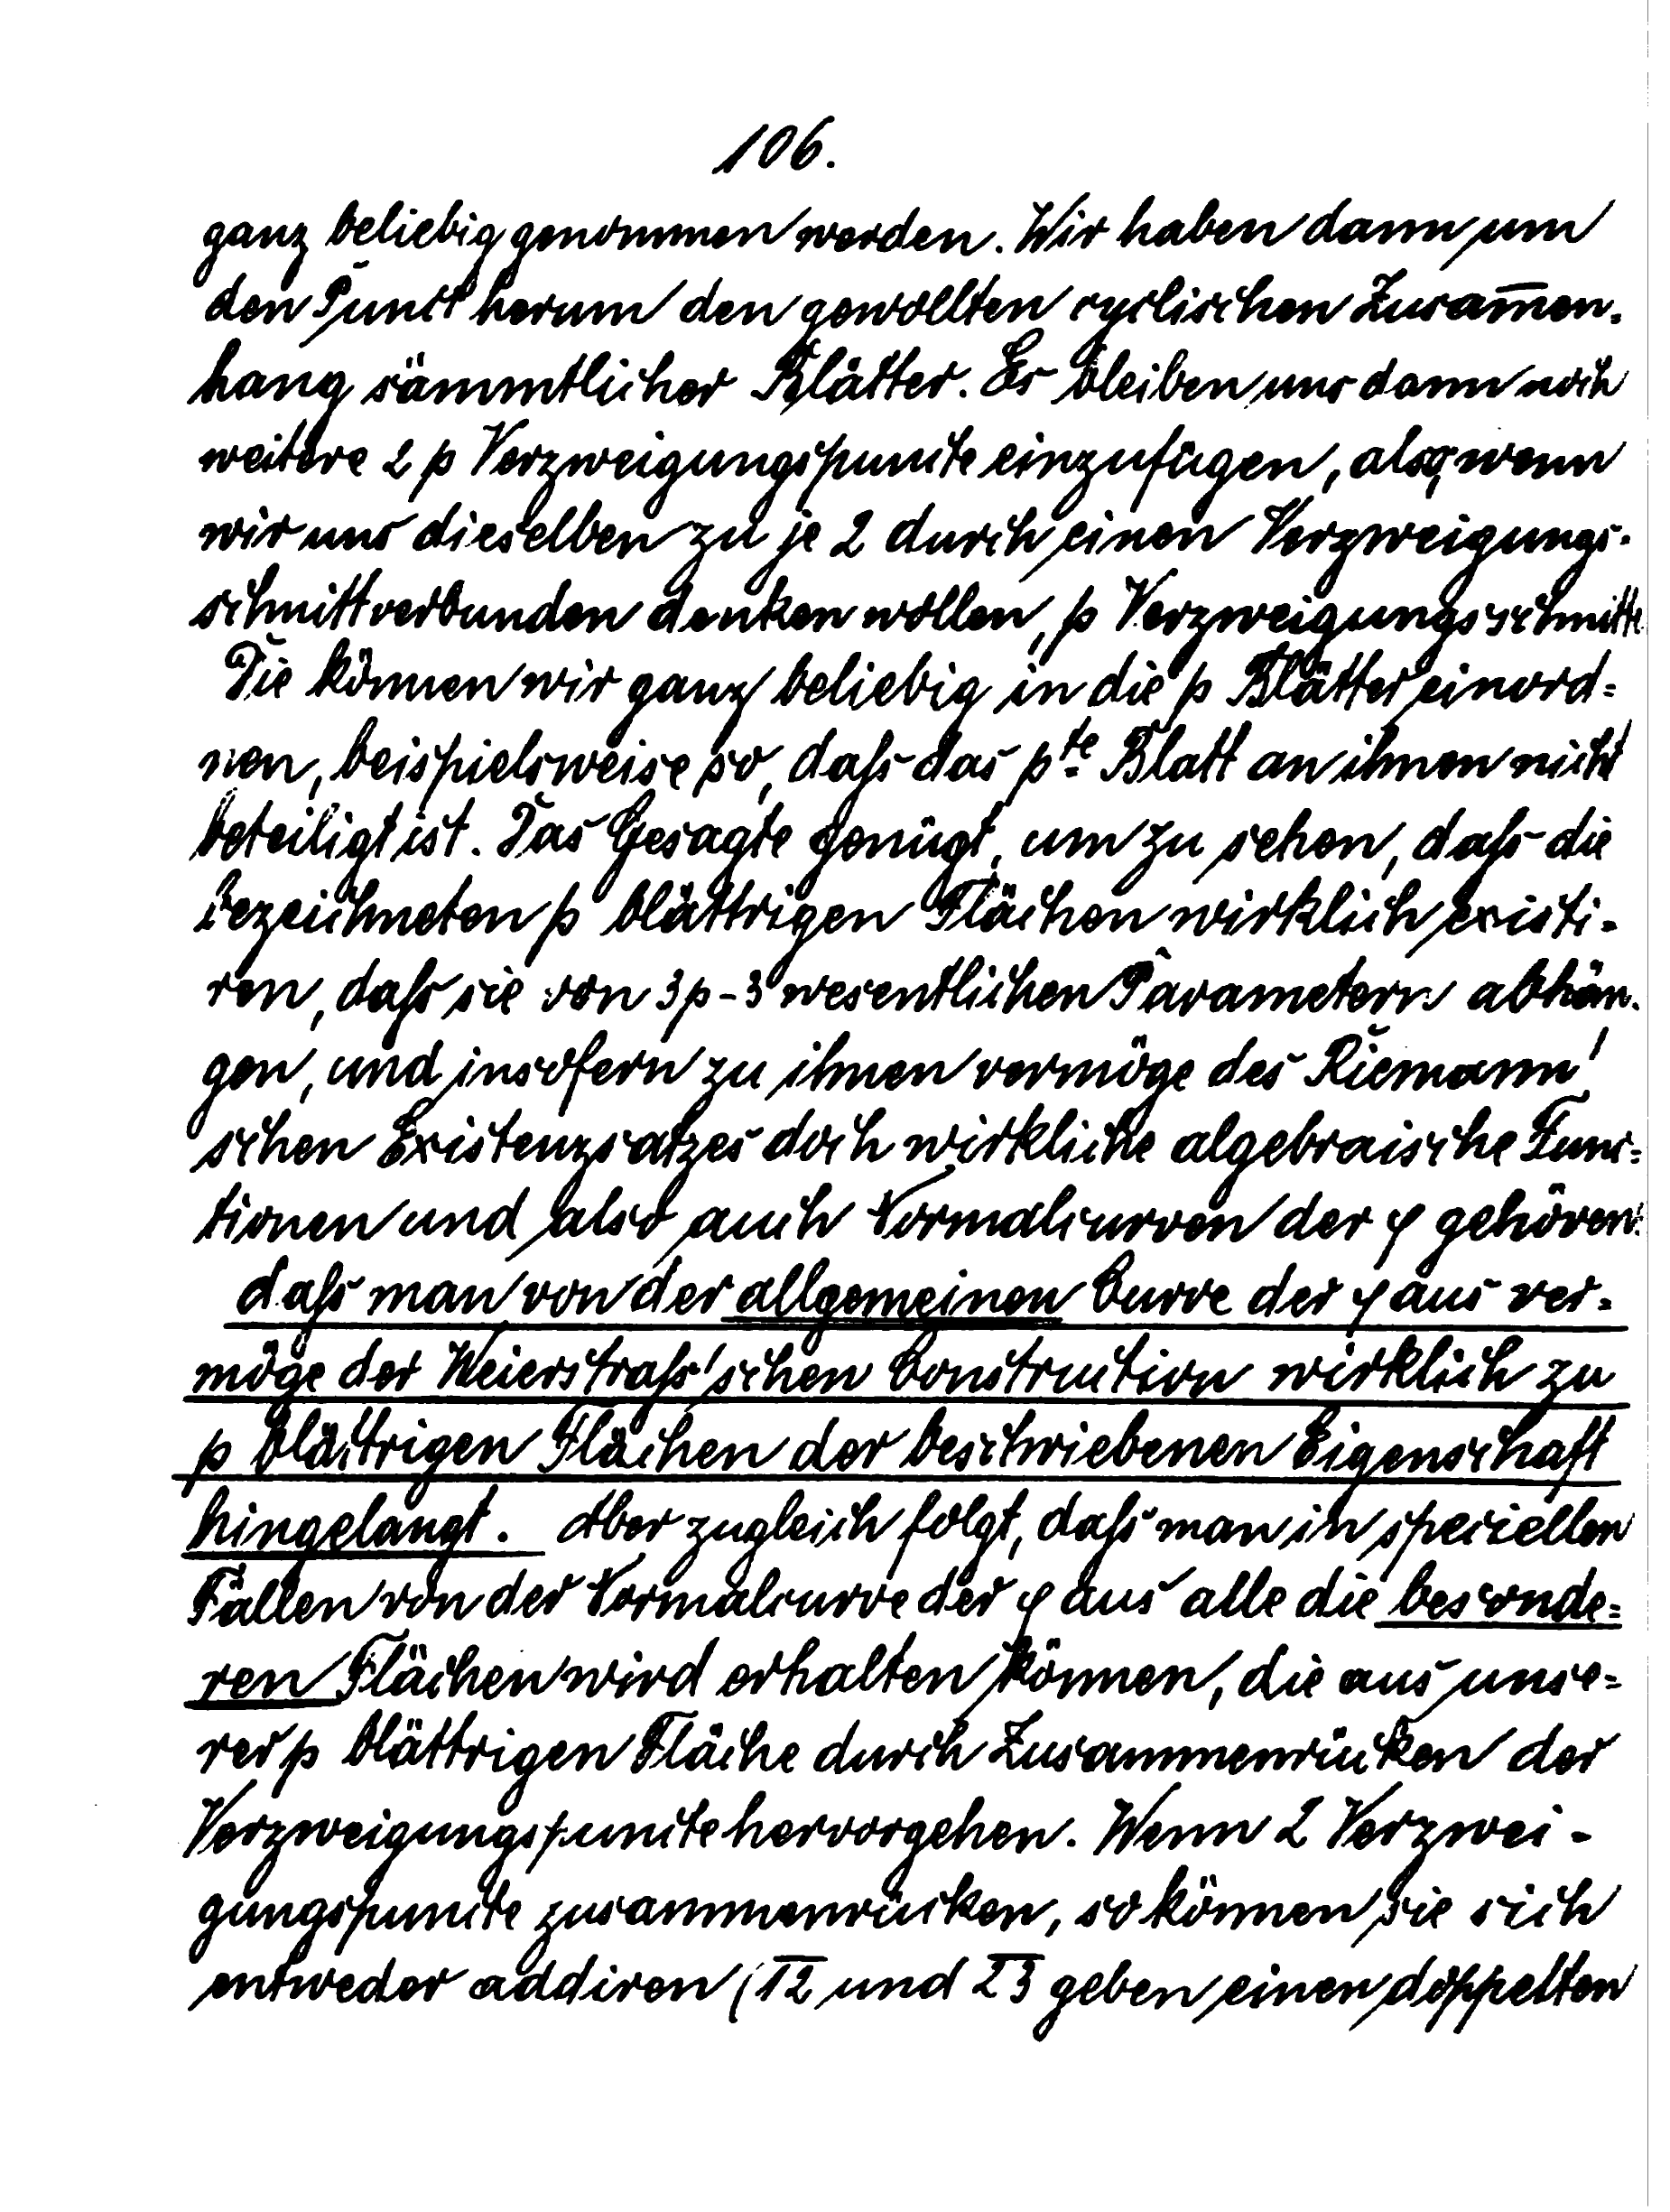 106.
ganz beliebig genommen werden. Wir haben dann um
den Punct herum den gewollten cyclischen Zusam̅en-
hang sämmtlicher Blätter. Es bleiben uns dann noch
weitere 2 p Verzweigungspuncte einzufügen, also, wenn
wir uns dieselben zu je 2 durch einen Verzweigungs-
schnitt verbunden denken wollen, p Verzweigungsschnitte.
Die können wir ganz beliebig in die p Blätter einord=
nen, beispielsweise so, daſs das pte Blatt an ihnen nicht
beteiligt ist. Das Gesagte genügt, um zu sehen, daſs die
bezeichneten p blättrigen Flächen wirklich existi-
ren, daſs sie von 3p-3 wesentlichen Parametern abhän-
gen, und insofern zu ihnen vermöge des Riemann'
schen Existenzsatzes doch wirkliche algebraische Func=
tionen und also auch Normalcurven der φ gehören:
daſs man von der allgemeinen Curve der φ aus ver=
möge der Weierstraſs'schen Construction wirklich zu
p blättrigen Flächen der beschriebenen Eigenschaft
hingelangt. Aber zugleich folgt, daſs man in speciellen
Fällen von der Normalcurve der φ aus alle die besonde=
ren Flächen wird erhalten können, die aus unse=
rer p blättrigen Fläche durch Zusammenrücken der
Verzweigungspuncte hervorgehen. Wenn 2 Verzwei-
gungspuncte zusammenrücken, so können sie sich
entweder addiren (1̅2̅ und 2̅3̅ geben einen doppelten